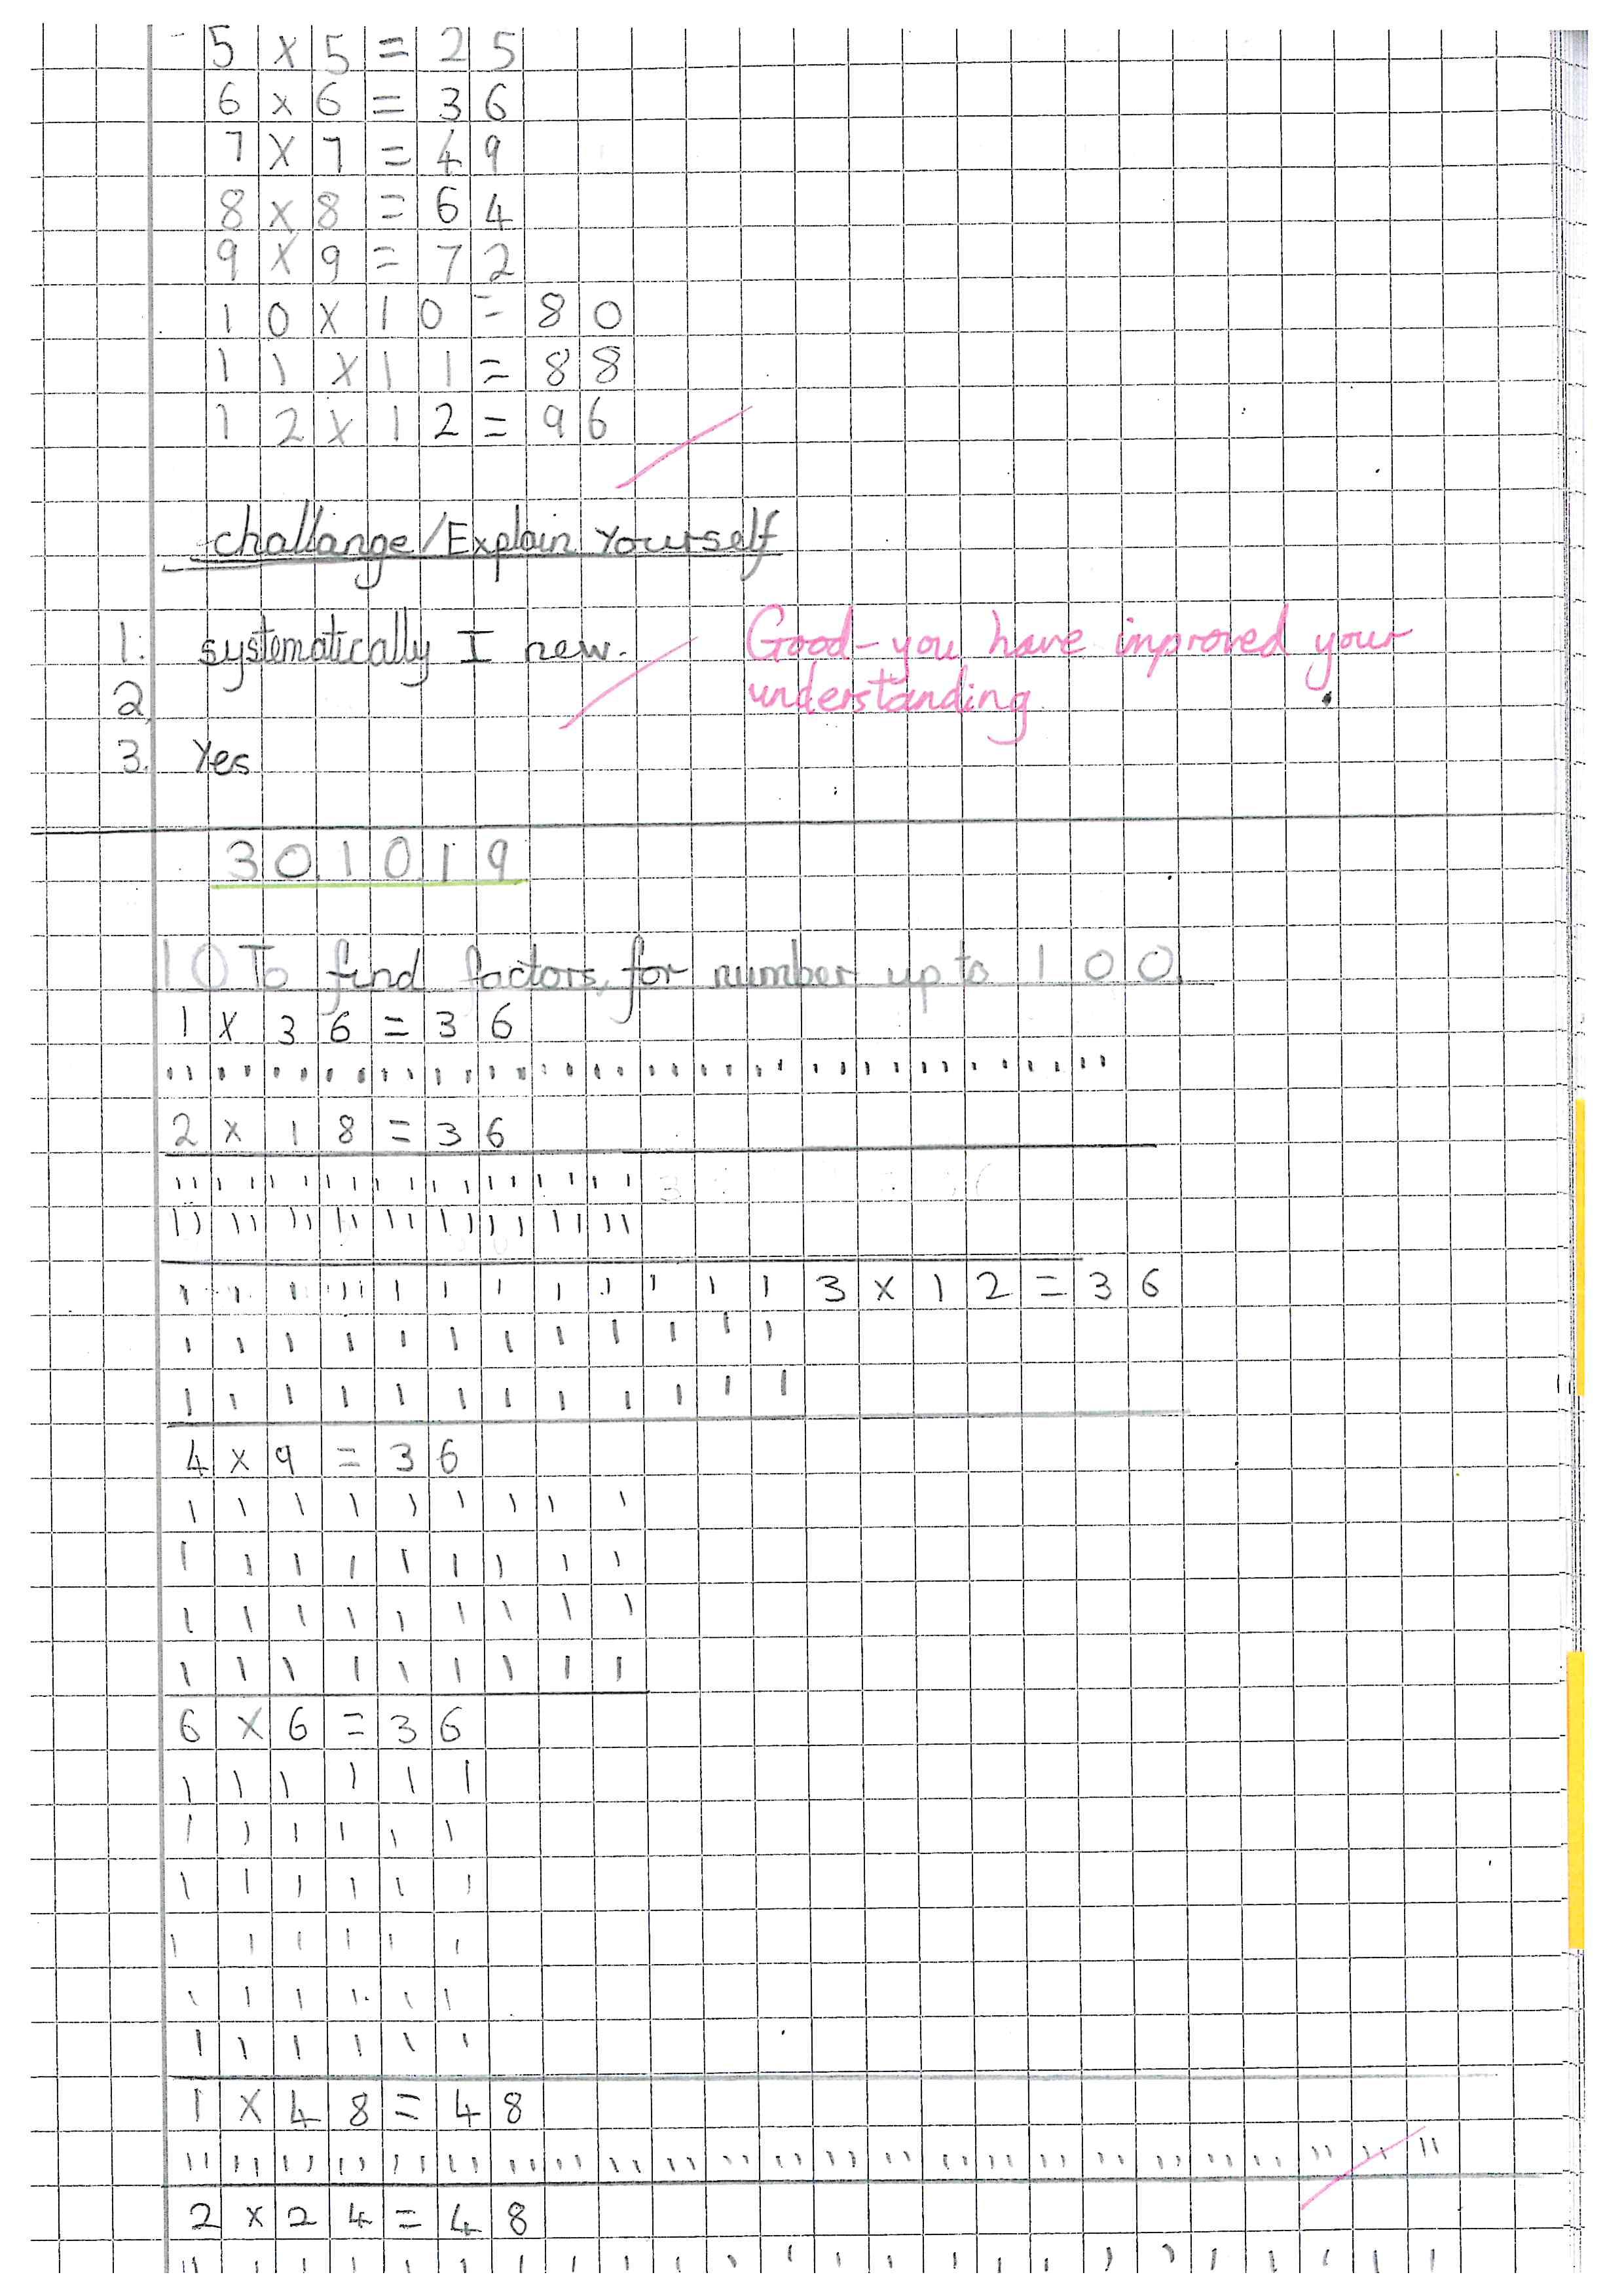 5 x 5 = 25
6 x 6 = 36
7 x 7 = 49
8 x 8 = 64
9 x 9 = 72
10 x 10 = 80
11 x 11 = 88
12 x 12 = 96
challange/Explain Yourself
1. systematically I new.
Good - you have improved your
understanding
2,
3. Yes
30.10.19
10 To find factors, for number up to 100.
1 x 36 = 36
2 x 18 = 36
3 x 12 = 36
4 x 9 = 36
6 x 6 = 36
1 x 48 = 48
2 x 24 = 48